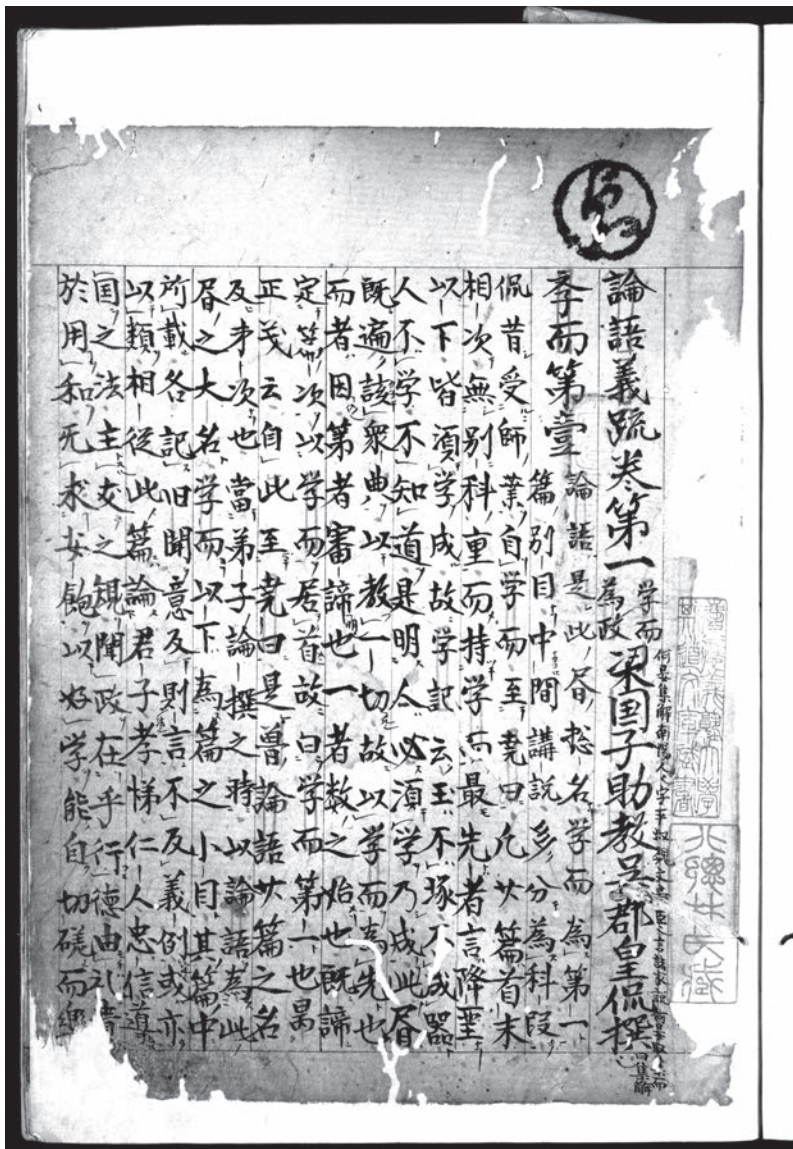 論語義疏巻第一 学而 為政 梁国子助教吴郡皇侃撰
学而第壹 論語是此昏捴名学而為第一
篇別目中間講説多分為科段
侃昔受師業自学而至尭曰凡廿篇首末
相次無別科重而持学而最先者言降聖
以下皆湏学成故学記云玉不琢不成器
人不学不知道是明人必湏学乃成此昏
既遍該衆典以教一切故以学而為先也
而者因第者審諦也一者数之始也既諦
定篇次以学而居首故曰学而第一也昺
正義云自此至尭曰是魯論語廿篇之名
及才次也當弟子論撰之時以論語為此
昏之大名学而以下為篇之小目其篇中
所載各記旧聞意及則言不及義例或亦
以類相從此篇論君子孝悌仁人忠信導
国之法主友之規聞政在乎行徳由礼貴
於用和无求安飽以好学能自切磋而樂
慶應義塾大学
斯道文庫蔵書